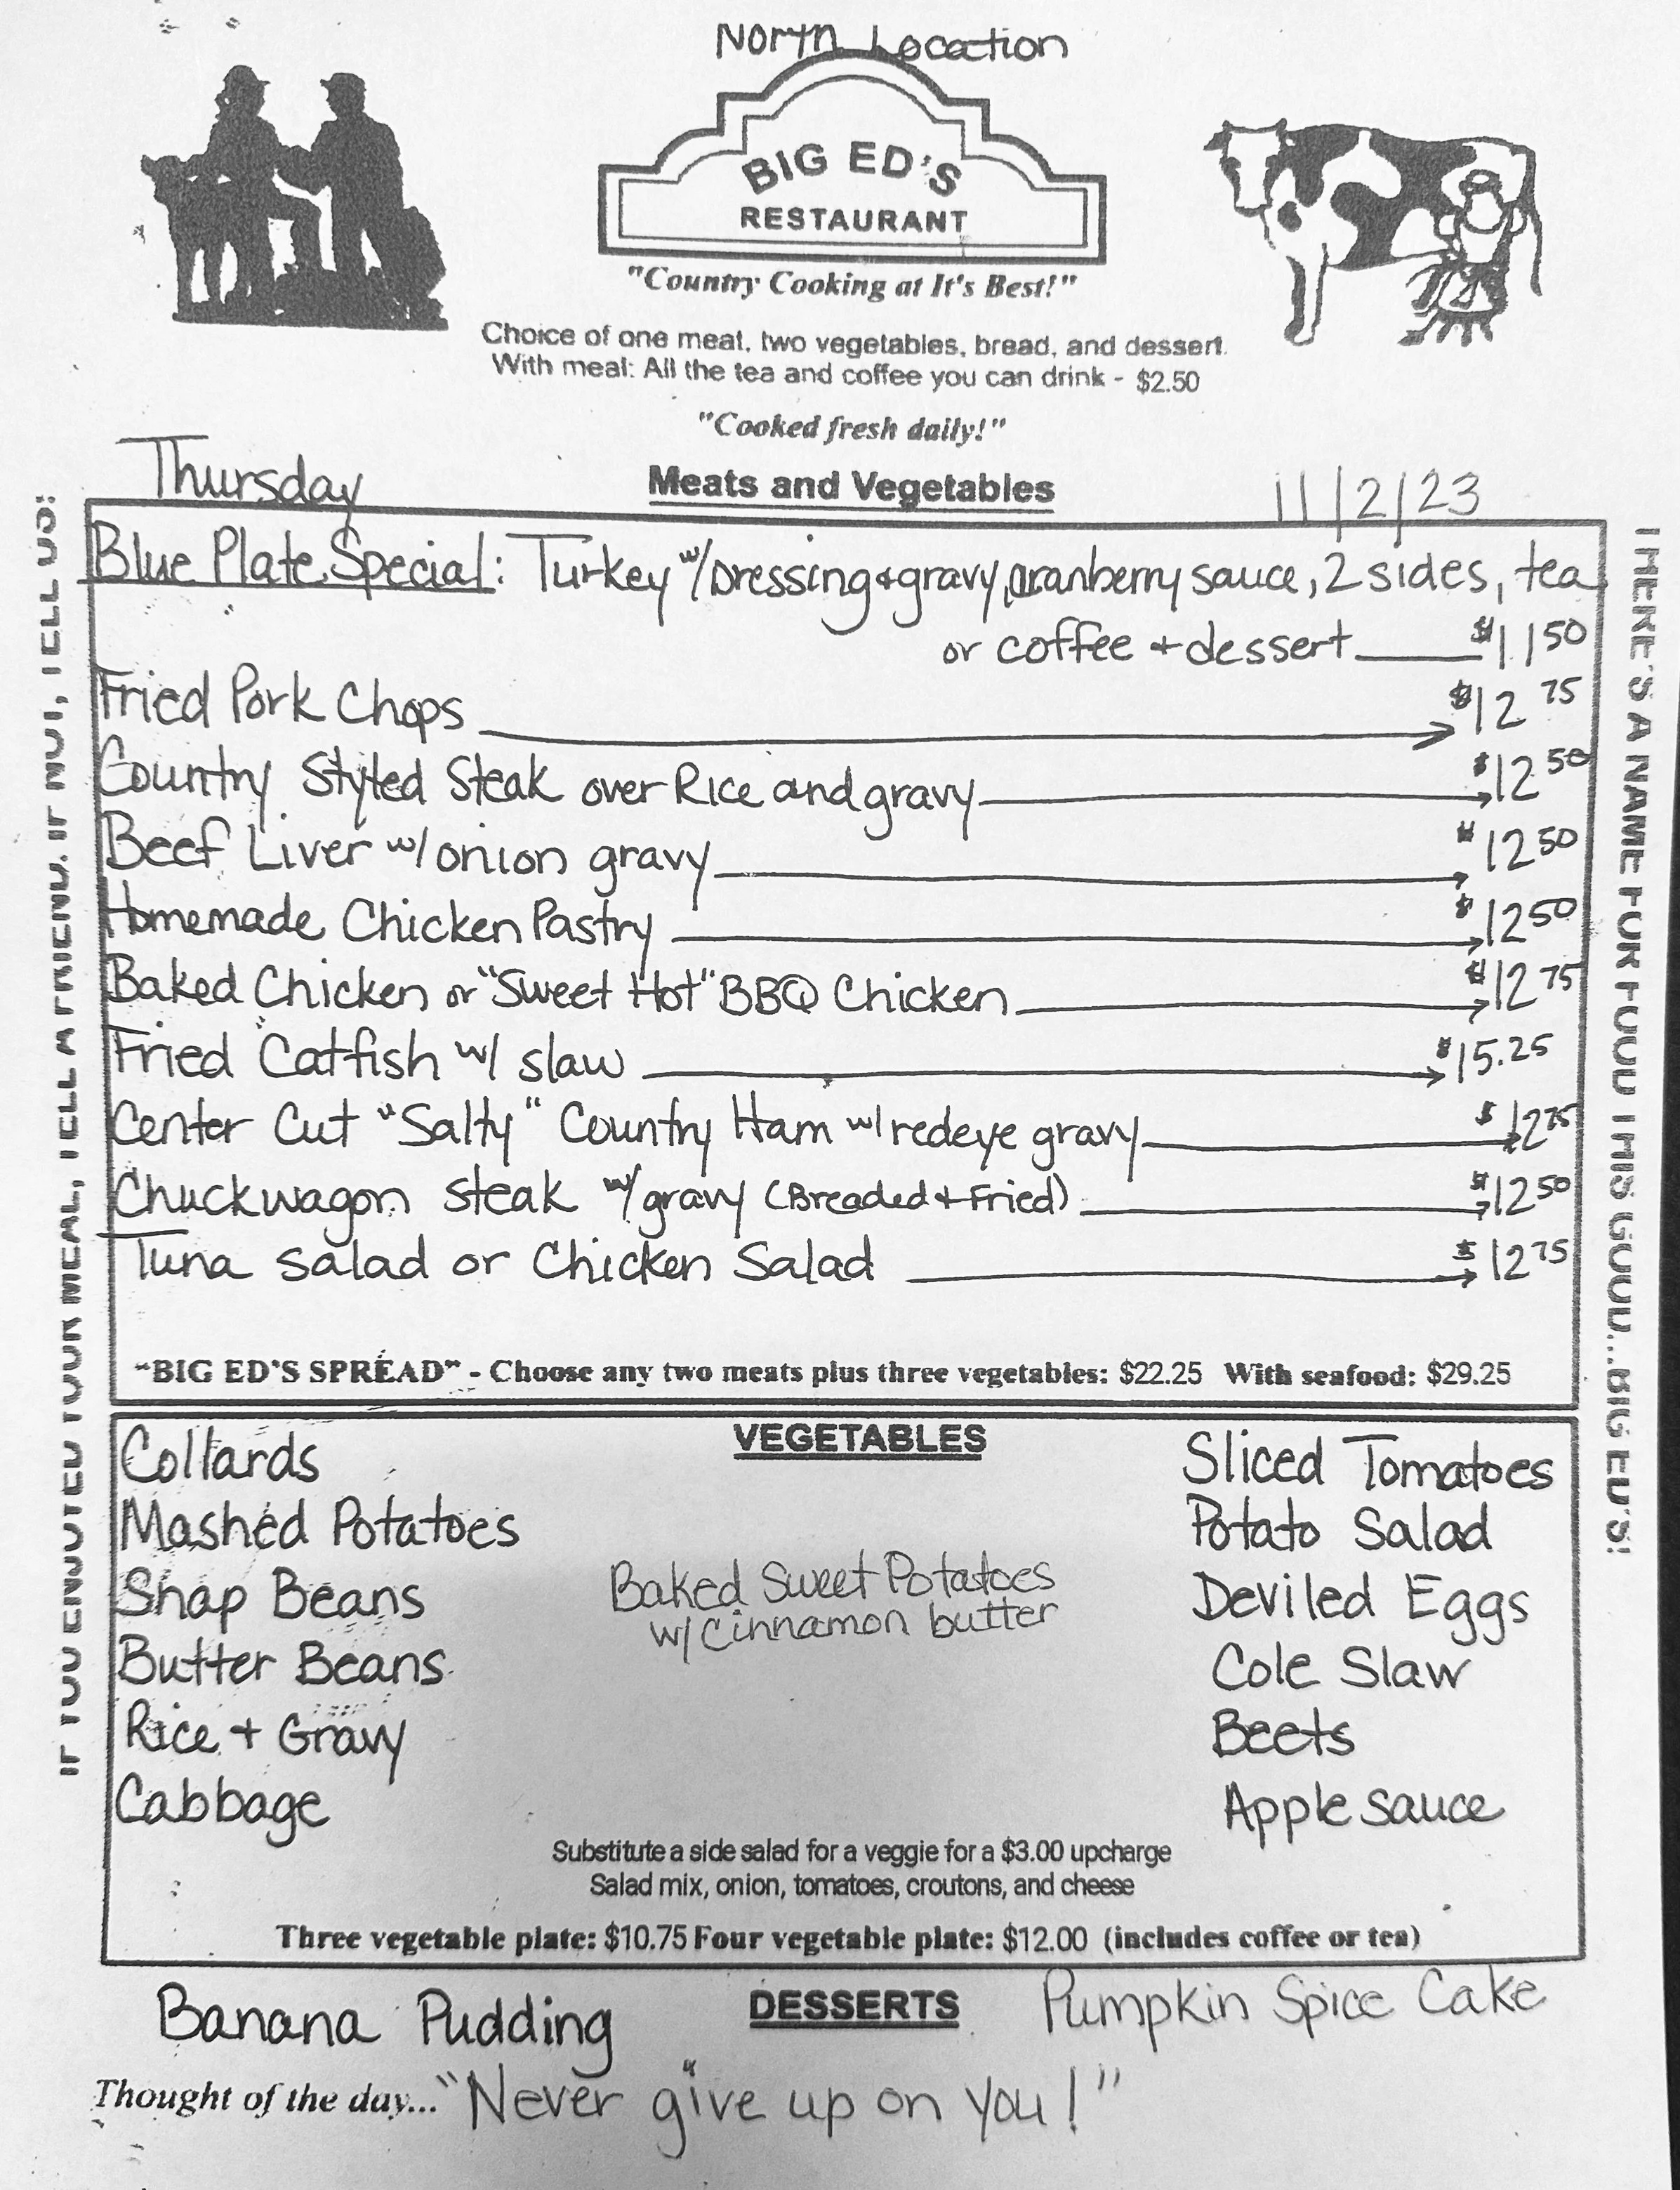 North Location
BIG ED'S
RESTAURANT
"Country Cooking at It's Best!"
Choice of one meat, two vegetables, bread, and dessert.
With meal: All the tea and coffee you can drink - $2.50
"Cooked fresh daily!"
Thursday
Meats and Vegetables
11/2/23
Blue Plate Special: Turkey w/Dressing+gravy, cranberry sauce, 2 sides, tea
or coffee + dessert $11 50
Fried Pork Chops $12 75
Country Styled Steak over Rice and gravy $12 50
Beef Liver w/ onion gravy $12 50
Homemade Chicken Pastry $12 50
Baked Chicken or "Sweet Hot" BBQ Chicken $12 75
Fried Catfish w/ slaw $15.25
Center Cut "Salty" Country Ham w/ redeye gravy $12 75
Chuckwagon steak w/ gravy (Breaded + Fried) $12 50
Tuna salad or Chicken Salad $12 75
"BIG ED'S SPREAD" - Choose any two meats plus three vegetables: $22.25 With seafood: $29.25
IF YOU ENJOYED YOUR MEAL, TELL A FRIEND. IF NOT, TELL US!
THERE'S A NAME FOR FOOD THIS GOOD...BIG ED'S!
VEGETABLES
Collards
Mashed Potatoes
Snap Beans
Butter Beans
Rice + Gravy
Cabbage
Baked Sweet Potatoes
w/ Cinnamon butter
Sliced Tomatoes
Potato Salad
Deviled Eggs
Cole Slaw
Beets
Apple sauce
Substitute a side salad for a veggie for a $3.00 upcharge
Salad mix, onion, tomatoes, croutons, and cheese
Three vegetable plate: $10.75 Four vegetable plate: $12.00 (includes coffee or tea)
DESSERTS
Banana Pudding
Pumpkin Spice Cake
Thought of the day... "Never give up on you!"